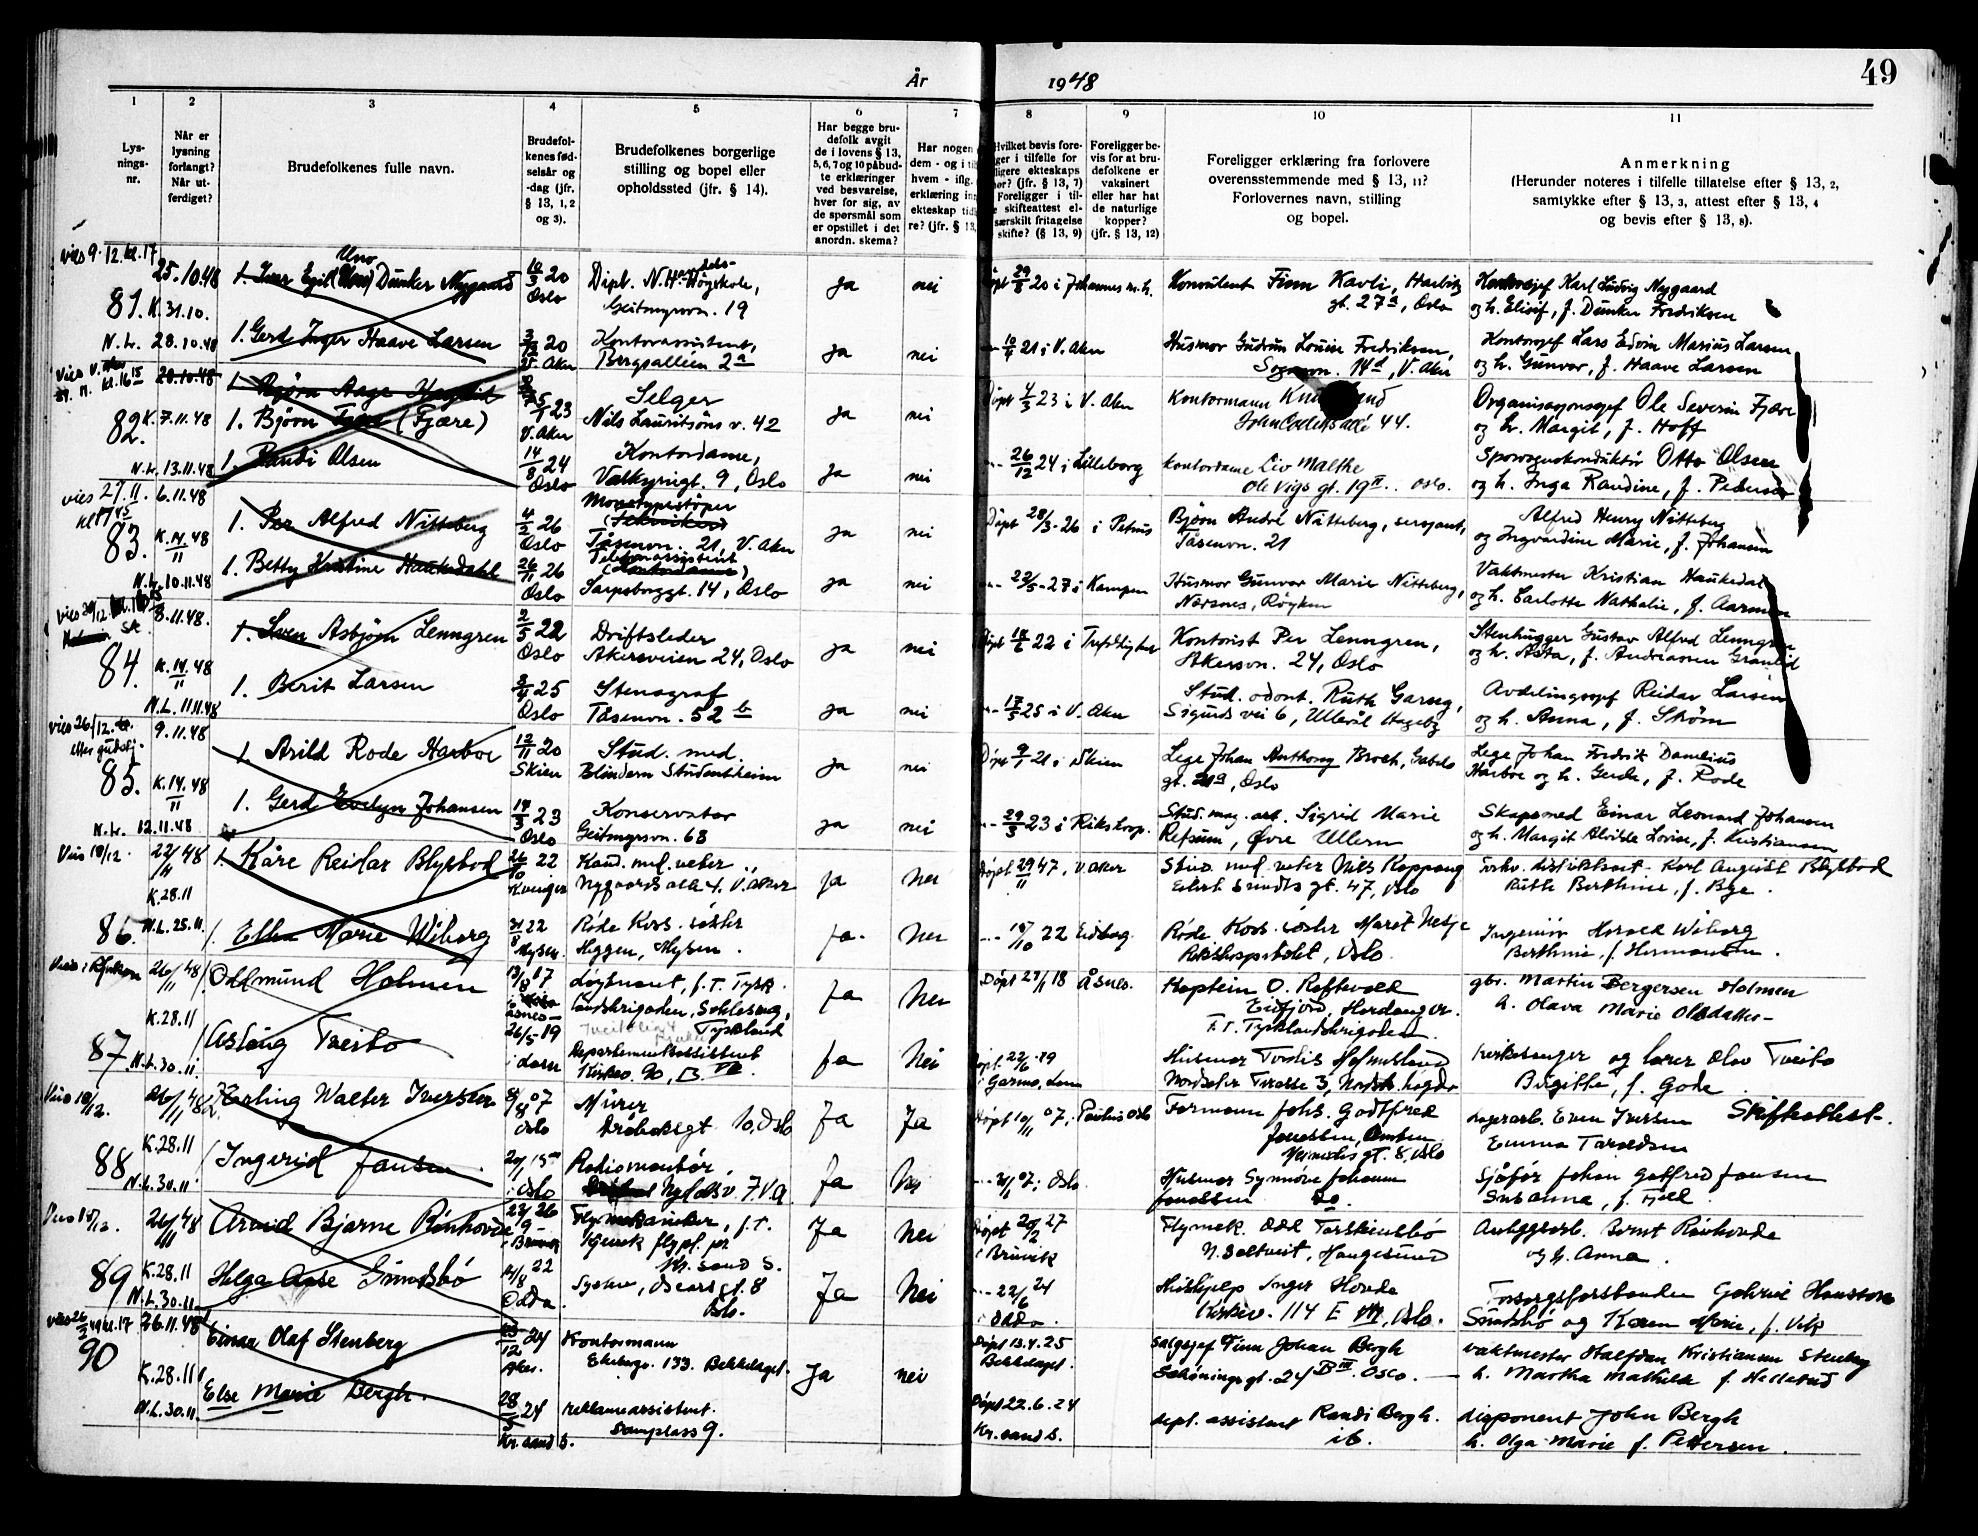 År 1948
49
1 2 3 4 5 6 7 8 9 10 11
Lys-
nings-
nr.
Når er
lysning
forlangt?
Når ut-
ferdiget?
Brudefolkenes fulle navn.
Brudefol-
kenes fød-
selsår og
-dag (jfr.
§ 13, 1, 2
og 3).
Brudefolkenes borgerlige
stilling og bopel eller
opholdssted (jfr. § 14).
Har begge bru-
defolk avgit
de i lovens § 13,
5, 6, 7 og 10 påbud-
te erklæringer
ved besvarelse,
hver for sig, av
de spørsmål som
er opstillet i det
anordn. skema?
Har nogen
dem - og i til
hvem - iflg.
erklæring in
ekteskap tid
re? (jfr. § 13,
Hvilket bevis fore-
ger i tilfelle for
ligere ekteskaps
hør? (jfr. § 13, 7)
Foreligger i til-
e skifteattest el-
særskilt fritagelse
skifte? (§ 13, 9)
Foreligger be-
vis for at bru-
defolkene er
vaksinert
eller har hat
de naturlige
kopper?
(jfr. § 13, 12)
Foreligger erklæring fra forlovere
overensstemmende med § 13, 11?
Forlovernes navn, stilling
og bopel.
Anmerkning
(Herunder noteres i tilfelle tillatelse efter § 13, 2,
samtykke efter § 13, 3, attest efter § 13, 4
og bevis efter § 13, 8).
vies 9.12. kl. 17
81. 25.10.48 K. 31.10. 1. Iver Egil Uno Dunker Nygaard 10/3 20 Oslo Dipl. N. Handels-Høgskole, Geitmyrsvn. 19 ja nei Døpt 29/8 20 i Johannes m.h. Konsulent Finn Kavli, Harbitz gt. 27a, Oslo Kontorsjef Karl Ludvig Nygaard
og h. Elisif, f. Dunker Fredriksen
N.L. 28.10.48 1. Gerd Inger Haave Larsen 20 V. Aker Kontorassistent, Bergsalléen 2a ja nei 21 i V. Aker Husmor Gudrun Louise Fredriksen, Sognsvn. 14d, V. Aker Kontorsjef Lars Edvin Marius Larsen
og h. Gunvor, f. Haave Larsen
28.10.48 1. Bjørn Aage
82. K. 7.11.48 1. Bjørn (Fjære) 23 V. Aker Selger Nils Lauritsøns v. 42 ja nei Døpt 4/3 23 i V. Aker Kontormann 44. Organisasjonssjef Ole Severin Fjære
og h. Margit, f. Hoff
N.L. 13.11.48 1. Randi Olsen 14/8 24 Oslo Kontordame, Valkyriegt. 9, Oslo ja nei 26/12 24 i Lilleborg Kontordame Liv Malthe Ole Vigs gt. 19 II Oslo. Sporvognskonduktør Otto Olsen
og h. Inga Randine, f. Pedersen
vies 27.11. kl 17 45
83. 6.11.48 K. 14/11.48 1. Per Alfred Nitteberg 4/2 26 Oslo Monotypestøper Tåsenvn. 21, V. Aker ja nei Døpt 28/3-26 i Petrus Bjørn André Nitteberg, sersjant, Tåsenvn. 21 Alfred Henry Nitteberg
og Ingvardine Marie, f. Johansen
N.L. 10.11.48 1. Betty Kristine Haukedahl 26/11 26 Oslo Telefonassistent (Kontordame) Sarpsborggt. 14, Oslo ja nei 22/5-27 i Kampen Husmor Gunvor Marie Nitteberg, Nærsnes, Røyken Vaktmester Kristian Haukedal
og h. Carlotte Nathalie, f. Aarmoen
84. 8.11.48. K. 14/11.48 1. Sven Asbjørn Lenngren 2/5 22 Oslo Driftsleder Akersveien 24, Oslo ja nei 22 i Trefoldighet Kontorist Per Lenngren, Akersvn. 24, Oslo Stenhugger Gustav Alfred Lenngren
og h. Asta, f. Andreassen Granlid
N.L. 11.11.48 1. Berit Larsen 3/4 25 Oslo Stenograf Tåsenvn. 52 b ja nei 17/5 25 i V. Aker Stud. odont. Ruth Garseg, Sigurds vei 6, Ullevål Hageby Avdelingssjef Reidar Larsen
og h. Anna, f. Strøm
vies 26/12. efter gudstj.
85. 9.11.48 K. 14/11.48 1. Arild Rode Harboe 12/11 20 Skien Stud. med. Blindern Studentheim ja nei Døpt 9/1 21 i Skien Lege Johan Anthony Broch, Gabels gt. Oslo Lege Johan Fredrik Damlius
Harboe og h. Gerda, f. Rode
N.L. 12.11.48 1. Gerd Evelyn Johansen 14/3 23 Oslo Konservator Geitmyrsvn. 68 ja nei 29/3 23 i Rikshosp. Stud. mag. art. Sigrid Marie Refsum, Øvre Ullern Skapsmed Einar Leonard Johansen
og h. Margit Alvilde Lovise, f. Kristiansen
Vies 18/12.
86. 22/11 48 K. 28.11 1. Kåre Reidar Blylbod 26/10 22 Kvinger Kand. med. veter., Nygaards alle 4. V. aker ja Nei Døpt 29/11 47, V aker Stud. med. veter Nils Koppang Eilert Sundts gt. 47, Oslo Forhv. distriktsart. Karl August Blylbod
Ruth Berthine, f. Bye.
N.L. 25.11. 1. Ella Marie Wiborg 22 Mysen. Røde Kors. søster Heggen, Mysen. Ja. Nei 18/10 22 Eidsberg. Røde Kors. søster Marit Nesje Rikshospitalet, Oslo. Ingeniør Harald Wiborg
Berthine, f. Hermansen.
Vies i Rjukan
87 26/11 48 K. 28.11 1. Oddmund Holmen 13/8 17 i Åsnes Løytnant, f.T. Tysk. Landsbrigaden, Schleswig, Tyskland Ja Nei Døpt 27/1 18 Åsnes. Kaptein O. Reftvedt Eidfjord, Hardanger. F.T. Tysklandsbrigaden gbr. Martin Bergersen Holmen
h. Olava Marie Olsdatter
N.L. 30.11 1. Aslaug Tveito 26/5 - 19 i Lom Departementsassistent Kirkev. 90, B. Ja Nei Døpt 22/6-19 i Garmo, Lom Husmor Tordis Helmersland Nordseter Terrasse 3, Nordstrandhøgda Kirkesanger og lærer Olav Tveito
Birgitte, f. Gode.
Vies 18/12.
88 26/11 48 K. 28.11 2. Erling Walter Iversen 07 Oslo Murer Drøbaksgt 10, Oslo Ja Ja Døpt 10/11 07 i Paulus Oslo Formann Johs. Godtfred Jonassen, Hermods gt. 8, Oslo Lagerarb. Even Iversen
Emma Taraldsen
Skifteattest.
N.L. 30.11. 1. Ingerid Jansen. i Oslo Radiomontør. Nyl dsv. 7. V.a Ja Nei Oslo. Husmor Synnøve Johanne Jonassen do Sjåfør Johan Gotfred Jansen
Susanna, f. Fjell.
Vies 18/12.
89 26/11 48 K. 28.11 Arvid Bjarne Rønhovde 23/9 26 i Bruvik Flymekaniker, f.t. Kjevik flypl. pr Kr. sand S. Ja Nei Døpt 20/2 27 i Bruvik Flymek. Odd Torsteinsbø N. Saltveit, Haugesund Anleggsarb. Bernt Rønhovde
og h. Anna.
N.L. 30.11 Helga Aase Sundsbø 14/8 22 Odda. Syerske, Oscarsgt. 8 Oslo. Ja Nei 22/6 24 i Odda. Hushjelp Inger Hovde Kirkev. 114 E, Oslo. Forsorgsforstander Gabriel Hanssen
Sundsbø og Karen Marie, f. Vik
90 26.11.48 K. 28.11 Einar Olaf Stenberg 23/12 24 Aker. Kontormann Ekebergv. 133. Bekkelaget. Ja nei Døpt 13.4.25 Bekkelaget. Salgssjef Finn Johan Bergh Schøningsgt. 24 B III Oslo. Vaktmester Halfdan Kristiansen Stenberg
h. Martha Mathilde f. Hellerud
N.L. 30.11. Else Marie Bergh. 28/5 24 Kr. sand S. reklameassistent. Damplass 9. Døpt 22.6.24 Kr. sand S. dept. assistent Randi Bergh. ib. disponent John Bergh
h. Olga Marie f. Pettersen.